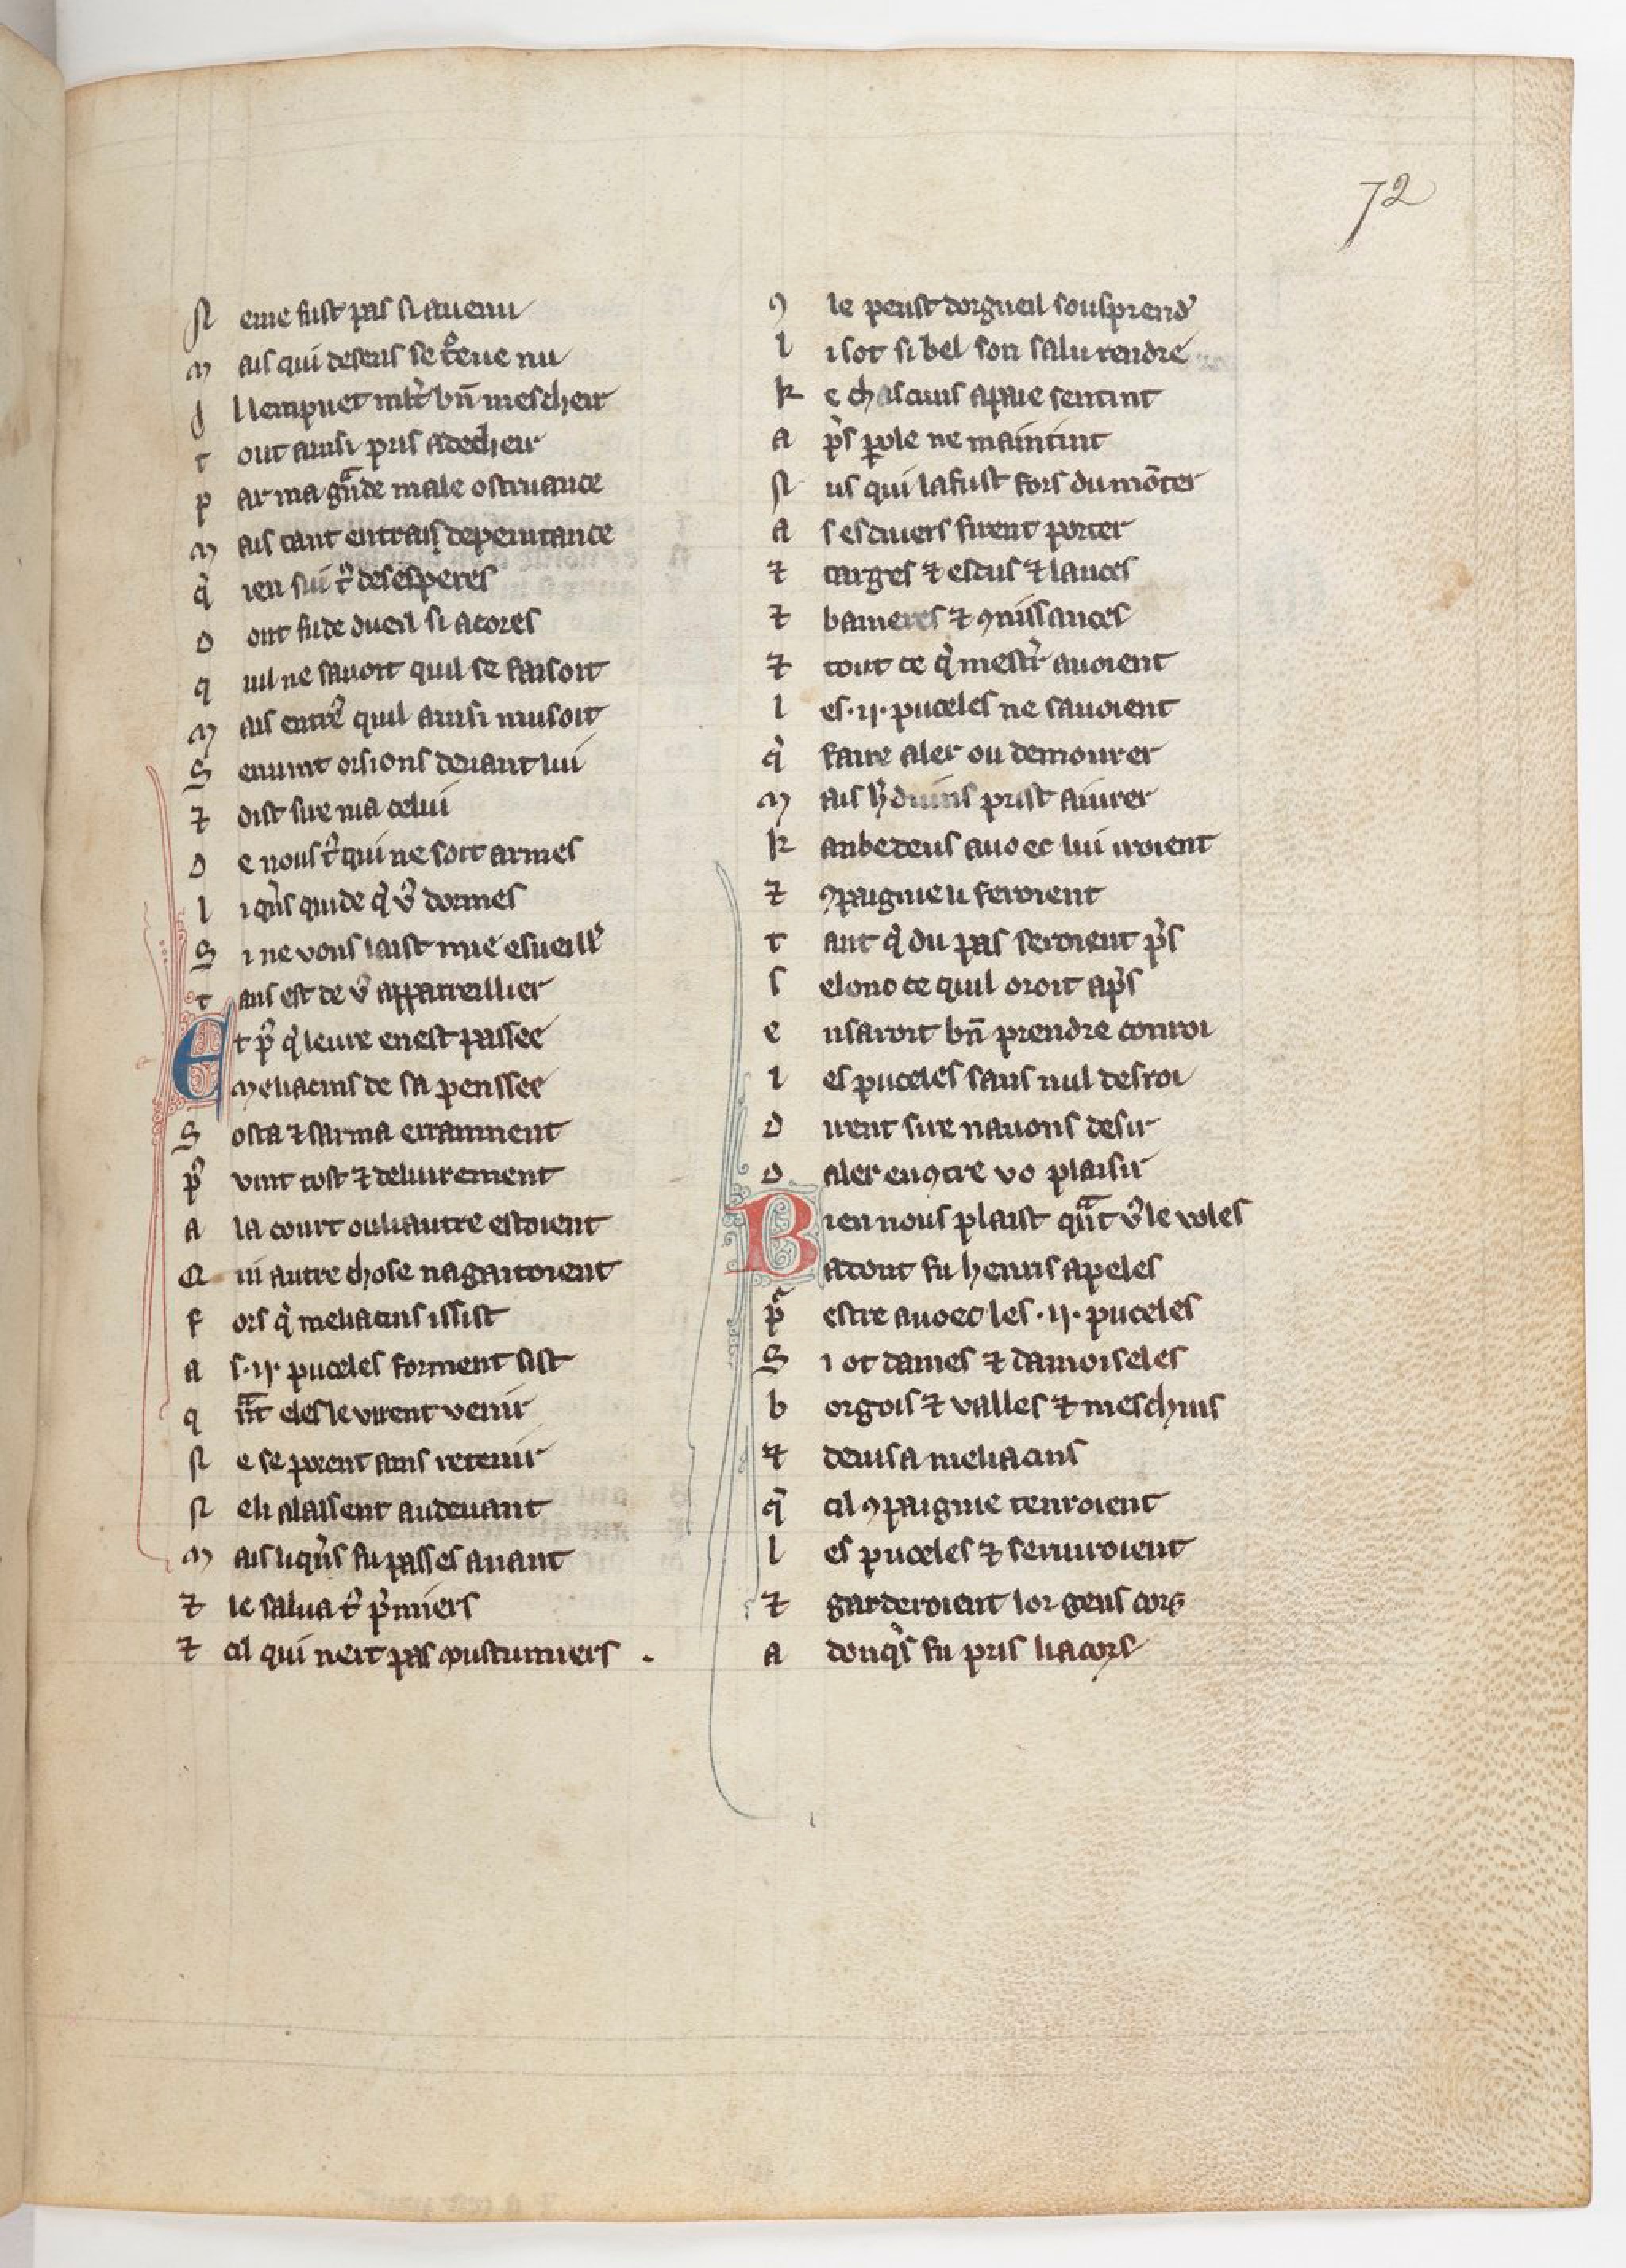 72
N eme fust pas si auenu
M ais qui desens se tͦeue nu
d Llempuet mlt᷑ bn̄ mescheir
t out ainsi pris adecheir
p ar ma gᷓnde male ostinance
M ais tant entrais depenitance
q̇ ien sui tͥ desesperes
D ont fu de dueil si acores
q uil ne sauoit quil se faisoit
M ais entrē quil ainsi musoit
S enuint orsions deuant lui
⁊ dist sire ma celui
D e nous tͥ qui ne soit armes
l i q̇ns quide q̇ vͦ dormes
S i ne vous laist mie esueillͥ
t ans est de vͦ apparreillier
E t pͦ q̇ leure en est passee
Meliacins de sa penssee
S osta ⁊ sarma erramment
pͦ vint tost ⁊ deliurement
A la court ou li autre estoient
Q ui autre chose nagaitoient
F ors q̇ meliacins issist
A s .ij. puceles forment sist
q ᷓnt eles le virent venir
N e se porent ains retenir
N eli alaissent audeuant
M ais li q̇ns fu passes auant
⁊ le salua tͥ pͥmiers
⁊ cil qui nert pas ꝯustumiers .
ꝯ le peust dorgueil sousprendͤ
l i sot si bel son salu rendre
k e chascuns apaie sentint
A pͥs ꝑole ne maintint
N us qui la fust fors du mōter
A s escuiers firent porter
⁊ targes ⁊ escus ⁊ lances
⁊ banieres ⁊ ꝯnissances
⁊ tout ce q̇ mestͥ auoient
l es .ij. puceles ne sauoient
q̇ faire aler ou demourer
M ais h̄ duins prist aiurer
k anbedeus auoec lui iroient
⁊ ꝯpaignie li feroient
t ant q̇ du pas seroient pͥs
s elonc ce quil oroit apͥs
e nsaroit bn̄ prendre conroi
l es puceles sans nul desroi
D irent sire nauons desir
D aler enꝯtre vo plaisir
B ien nous plaist qᷓnt vͦ le voles
Atont fu henris apeles
pᷓ estre auoec les .ij. puceles
S i ot dames ⁊ damoiseles
b orgois ⁊ valles ⁊ meschins
⁊ deuisa meliacins
q̄ cil ꝯpaignie tenroient
l es puceles ⁊ seruiroient
⁊ garderoient lor gens cors
A donq̇s fu pris li acors